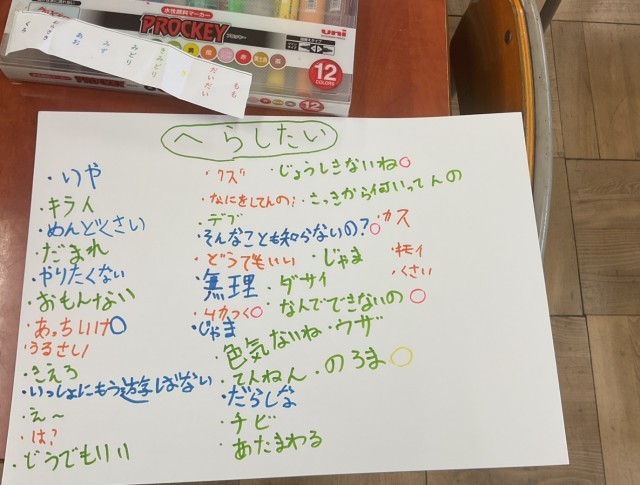 水性顔料マーカー
PROCKEY
uni
12
COLORS
12
くろ
むらさき
あお
みず
みどり
きみどり
き
だいだい
もも
へらしたい
・いや
・キライ
・めんどくさい
・だまれ
・やりたくない
・おもんない
・あっちいけ
・うるさい
・きえろ
・いっしょにもう遊ばない
・え～
・は?
・どうでもいい
・クズ
・じょうしきないね
・なにをしてんの;
・さっきから何いってんの
・デブ
・カス
・そんなことも知らないの?
・どうでもいい
・じゃま
・キモイ
・くさい
・無理
・ダサイ
・ムカつく
・なんでできないの
・じゃま
・色気ないね
・ウザ
・てんねん
・のろま
・だらしな
・チビ
・あたまわる